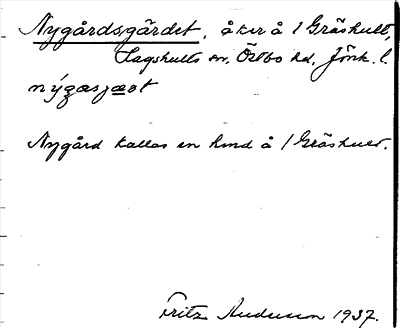 Nygårdsgärdet, åker å 1 Gräshult,
Sagshults sn, Östbo hd, Jönk. l.
nýgasjæst
Nygård kallas en lund å 1 Gräshult.
Fritz Anderson 1937.